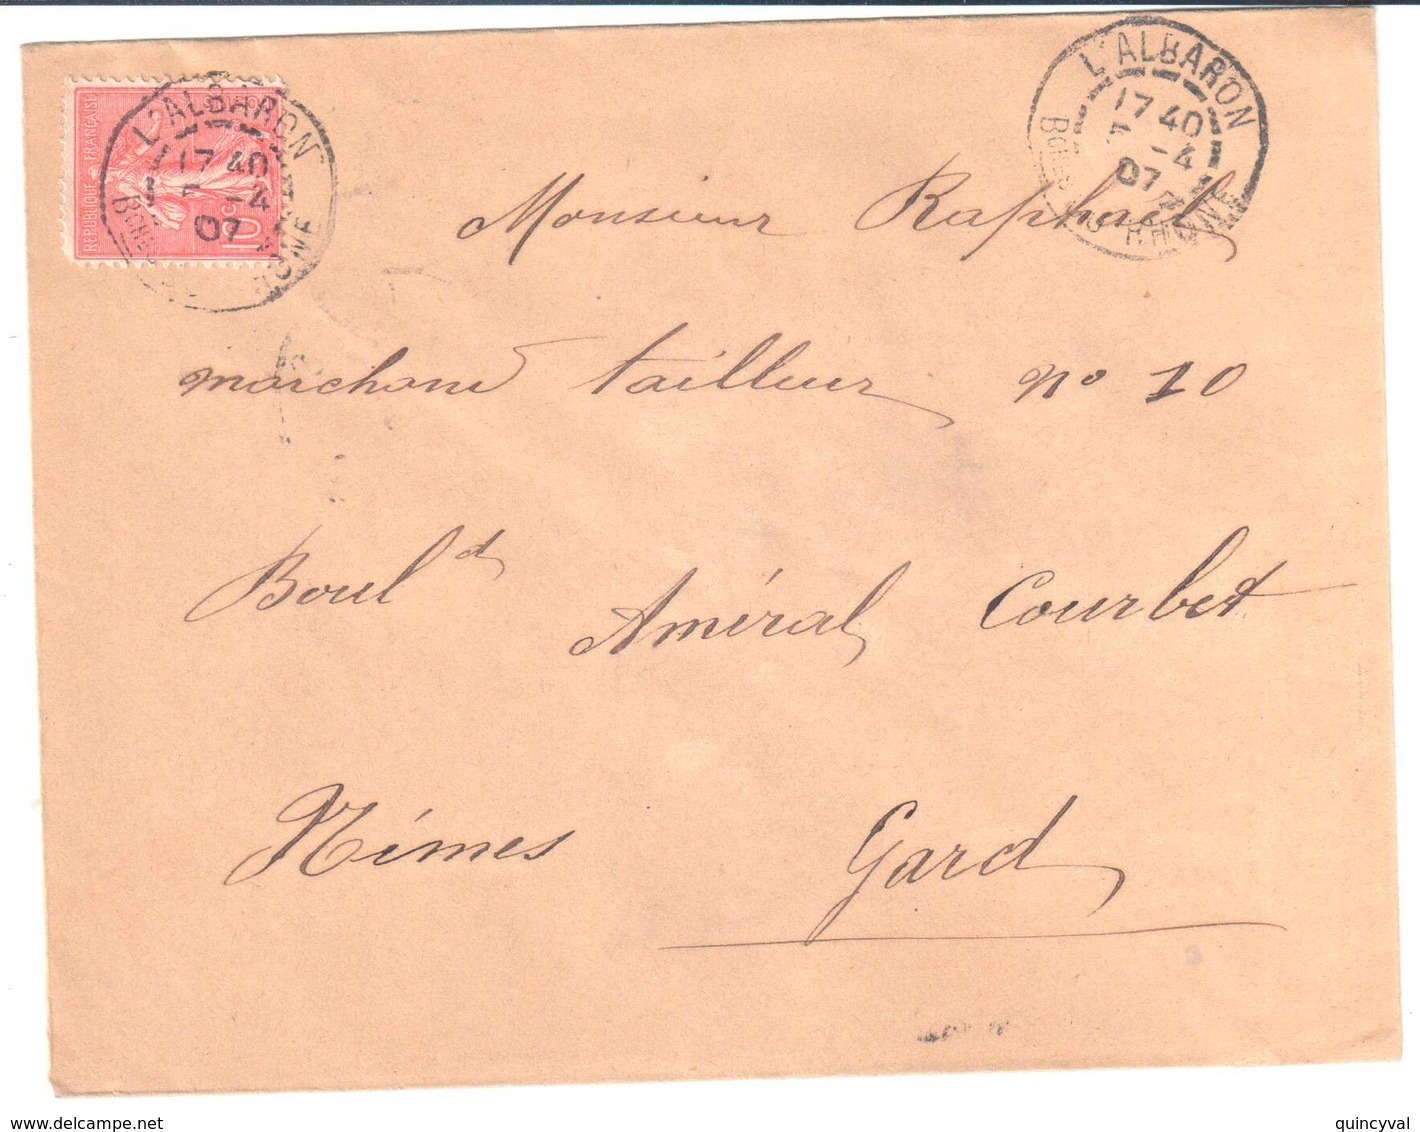 RÉPUBLIQUE FRANÇAISE
10c
L'ALBARON
17 40
-4
07
RHÔNE
L'ALBARON
17 40
-4
07
BCHES DU RHÔNE
Monsieur Raphael
marchand tailleur no 10
Bould Améral Courbet
Nîmes Gard
www.delcampe.net
quincyval